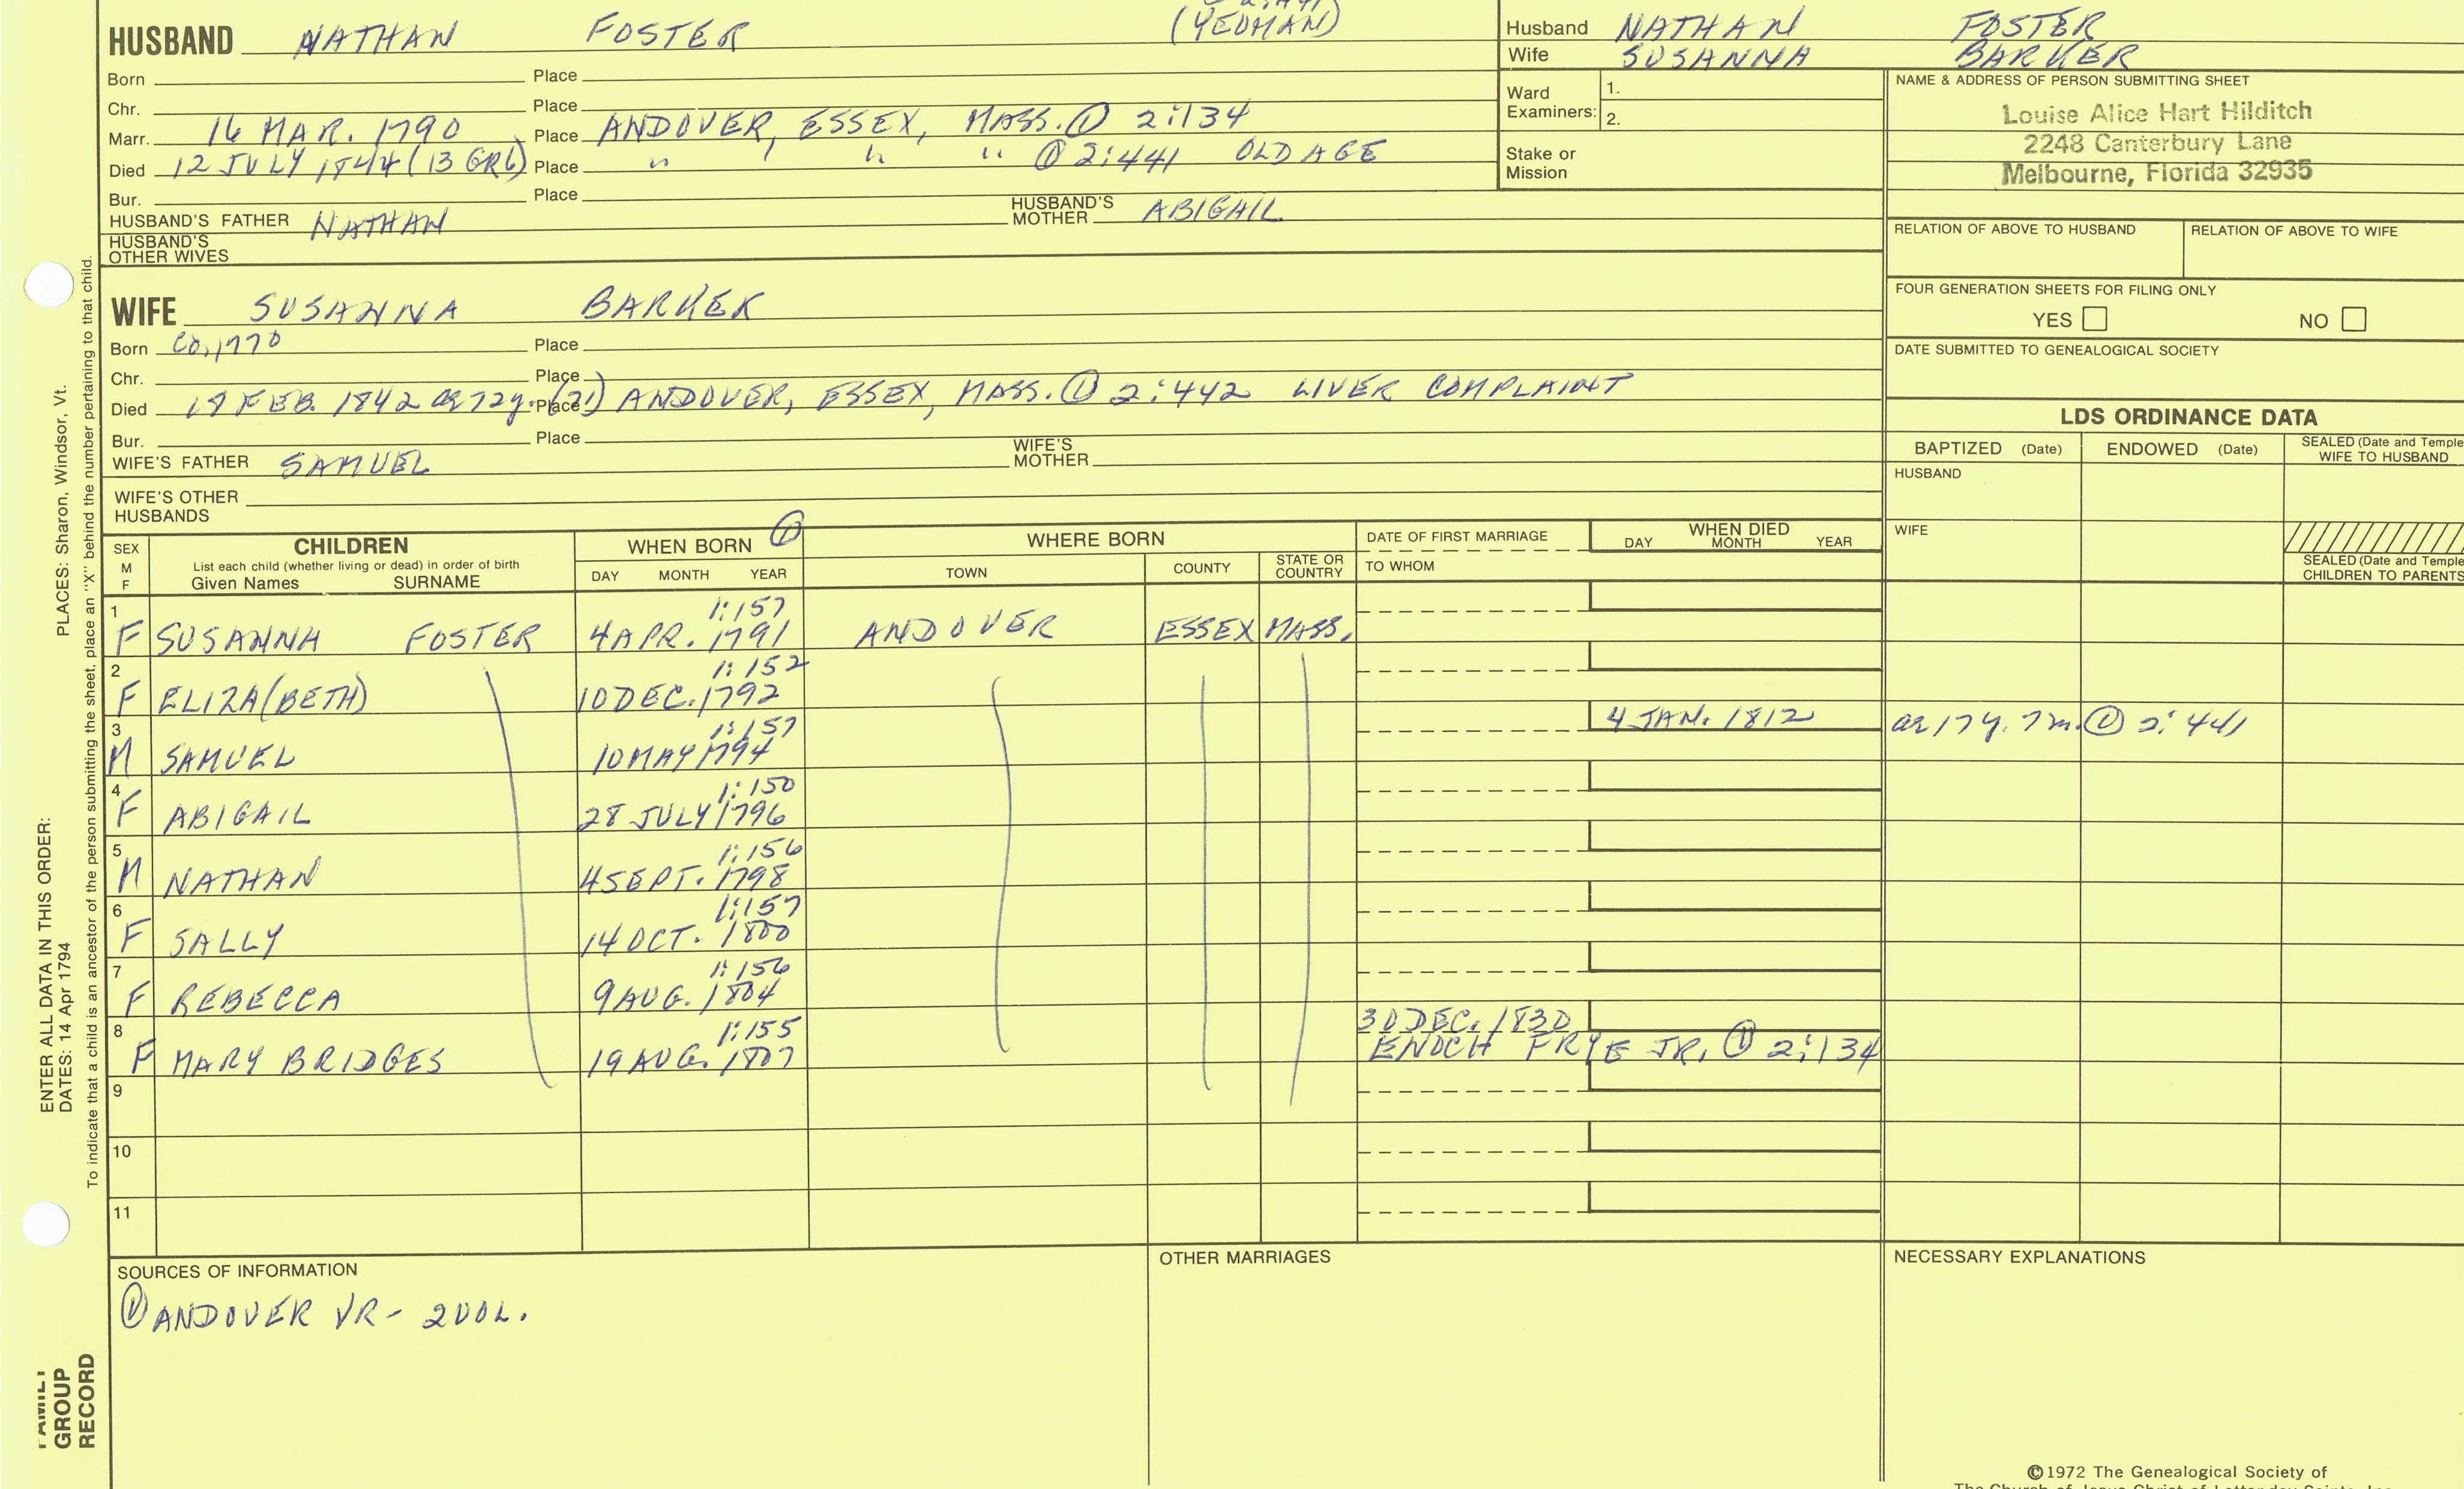 HUSBAND NATHAN FOSTER (YEOMAN)
Born Place
Chr. Place
Marr. 16 MAR. 1790 Place ANDOVER, ESSEX, MASS. ① 2:134
Died 12 JULY 1844 (13 GR6) Place " " " ① 2:441 OLD AGE
Bur. Place
HUSBAND'S FATHER NATHAN HUSBAND'S MOTHER ABIGAIL
HUSBAND'S OTHER WIVES
Husband NATHAN FOSTER
Wife SUSANNA BARKER
Ward Examiners: 1. 2.
Stake or Mission
NAME & ADDRESS OF PERSON SUBMITTING SHEET
Louise Alice Hart Hilditch
2248 Canterbury Lane
Melbourne, Florida 32935
RELATION OF ABOVE TO HUSBAND RELATION OF ABOVE TO WIFE
FOUR GENERATION SHEETS FOR FILING ONLY
YES NO
DATE SUBMITTED TO GENEALOGICAL SOCIETY
WIFE SUSANNA BARKER
Born CA. 1770 Place
Chr. Place
Died FEB. 1842 ae 72y. (21) Place ANDOVER, ESSEX, MASS. ① 2:442 LIVER COMPLAINT
Bur. Place
WIFE'S FATHER SAMUEL WIFE'S MOTHER
WIFE'S OTHER HUSBANDS
LDS ORDINANCE DATA
BAPTIZED (Date) ENDOWED (Date) SEALED (Date and Temple) WIFE TO HUSBAND
HUSBAND
WIFE
SEALED (Date and Temple) CHILDREN TO PARENTS
SEX M F CHILDREN List each child (whether living or dead) in order of birth Given Names SURNAME
WHEN BORN ① DAY MONTH YEAR
WHERE BORN TOWN COUNTY STATE OR COUNTRY
DATE OF FIRST MARRIAGE TO WHOM
WHEN DIED DAY MONTH YEAR
1 F SUSANNA FOSTER 1:157 4 APR. 1791 ANDOVER ESSEX MASS.
2 F ELIZA(BETH) 1:152 10 DEC. 1792
3 M SAMUEL 1:157 10 MAY 1794 4 JAN. 1812 ae 17y. 7m. ① 2:441
4 F ABIGAIL 1:150 28 JULY 1796
5 M NATHAN 1:156 4 SEPT. 1798
6 F SALLY 1:157 14 OCT. 1800
7 F REBECCA 1:156 9 AUG. 1804
8 F MARY BRIDGES 1:155 19 AUG. 1807 30 DEC. 1830 ENOCH FRYE JR. ① 2:134
9
10
11
SOURCES OF INFORMATION
① ANDOVER VR - 2 VOL.
OTHER MARRIAGES
NECESSARY EXPLANATIONS
©1972 The Genealogical Society of
The Church of Jesus Christ of Latter-day Saints, Inc.
PLACES: Sharon, Windsor, Vt.
ENTER ALL DATA IN THIS ORDER:
DATES: 14 Apr 1794
To indicate that a child is an ancestor of the person submitting the sheet, place an "X" behind the number pertaining to that child.
FAMILY
GROUP
RECORD